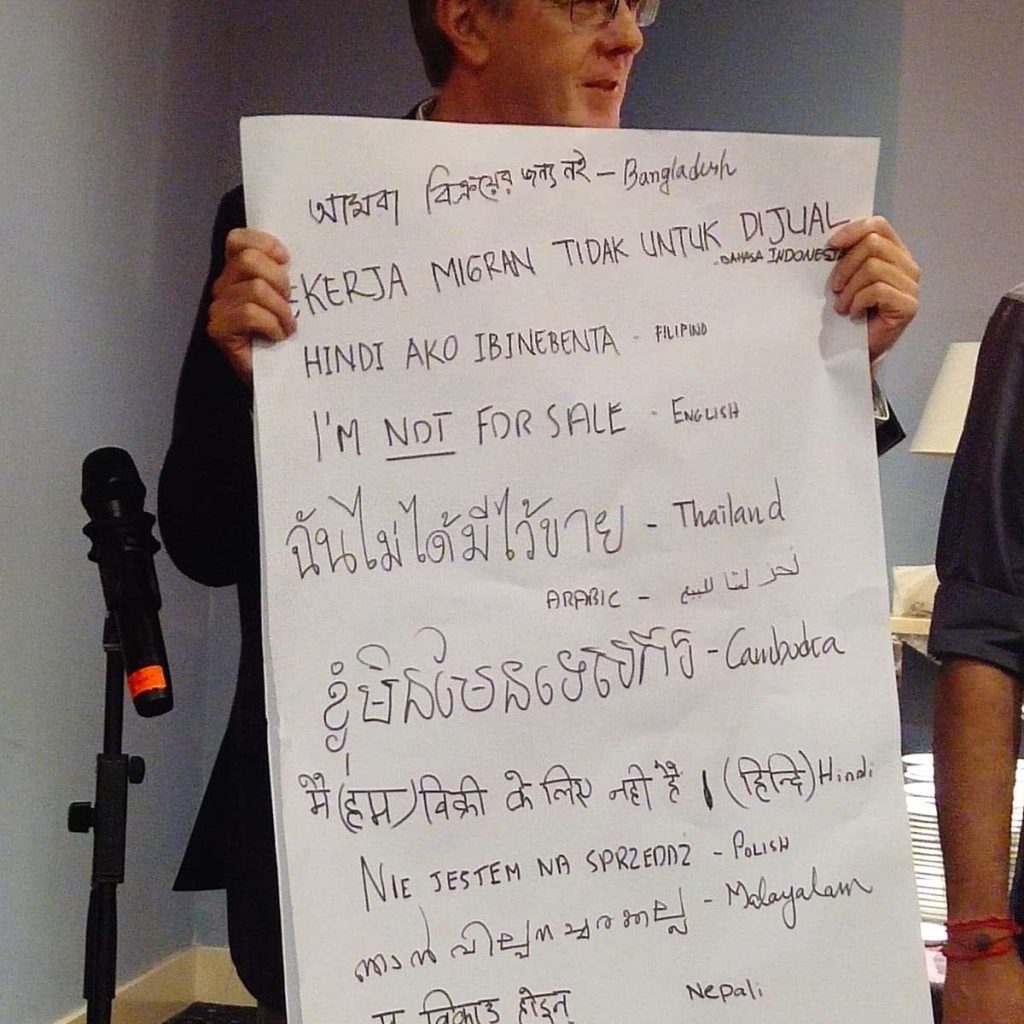 আমরা বিক্রয়ের জন্য নই – Bangladesh
EKERJA MIGRAN TIDAK UNTUK DIJUAL
- BAHASA INDONESIA
HINDI AKO IBINEBENTA - FILIPINO
I'M NOT FOR SALE - ENGLISH
ฉันไม่ได้มีไว้ขาย - Thailand
ARABIC - نحن لسنا للبيع
ខ្ញុំមិនមែនទេ - Cambodia
मै (हम) विक्री के लिए नही है । (हिन्दि) Hindi
NIE JESTEM NA SPRZEDAŻ - POLISH
ഞാൻ - Malayalam
म विकाउ होइन् Nepali